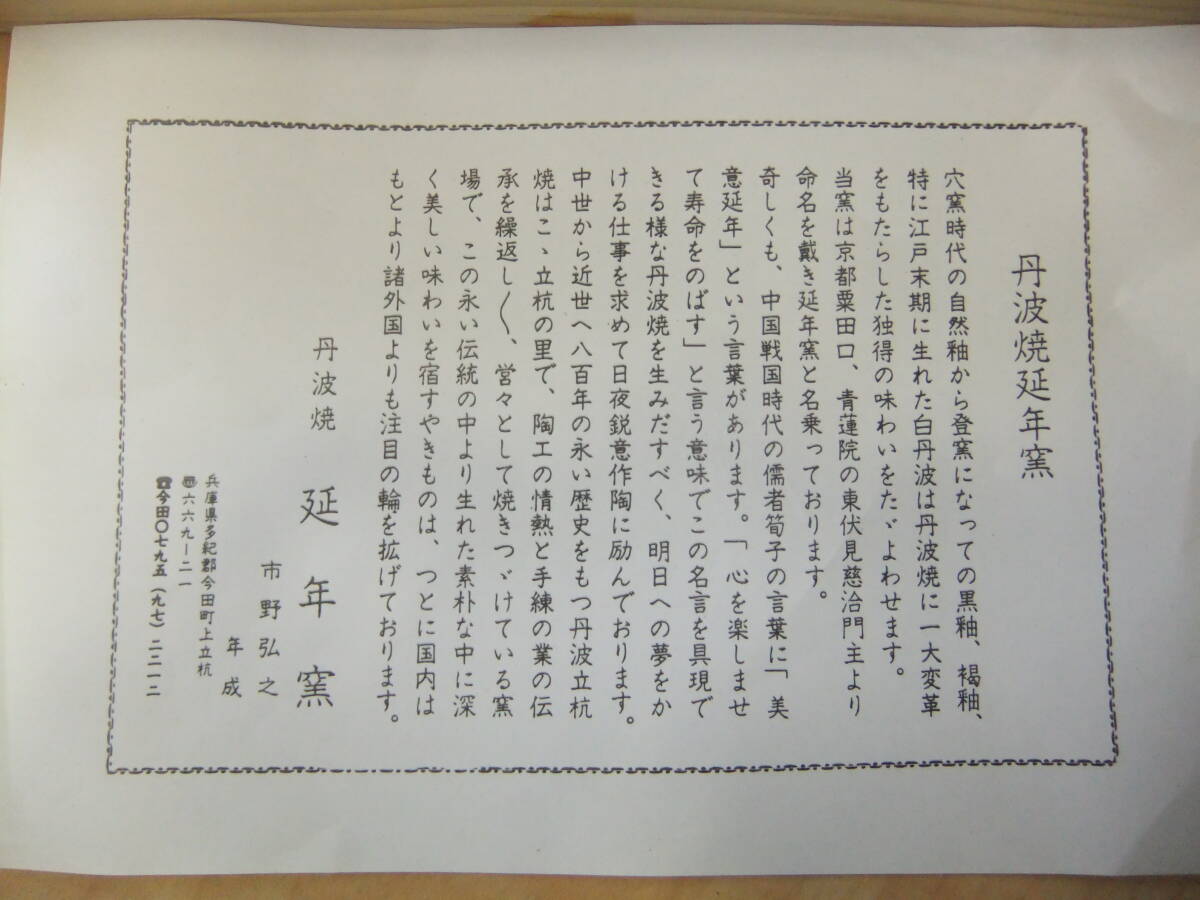 丹波焼延年窯
穴窯時代の自然釉から登窯になっての黒釉、褐釉、
特に江戸末期に生れた白丹波は丹波焼に一大変革
をもたらした独得の味わいをたゞよわせます。
当窯は京都粟田口、青蓮院の東伏見慈洽門主より
命名を戴き延年窯と名乗っております。
奇しくも、中国戦国時代の儒者筍子の言葉に「美
意延年」という言葉があります。「心を楽しませ
て寿命をのばす」と言う意味でこの名言を具現で
きる様な丹波焼を生みだすべく、明日への夢をか
ける仕事を求めて日夜鋭意作陶に励んでおります。
中世から近世へ八百年の永い歴史をもつ丹波立杭
焼はこゝ立杭の里で、陶工の情熱と手練の業の伝
承を繰返し〱、営々として焼きつゞけている窯
場で、この永い伝統の中より生れた素朴な中に深
く美しい味わいを宿すやきものは、つとに国内は
もとより諸外国よりも注目の輪を拡げております。
丹波焼 延年窯
市野弘之
年成
兵庫県多紀郡今田町上立杭
〠六六九ー二一
☎今田〇七九五(九七)二二一二